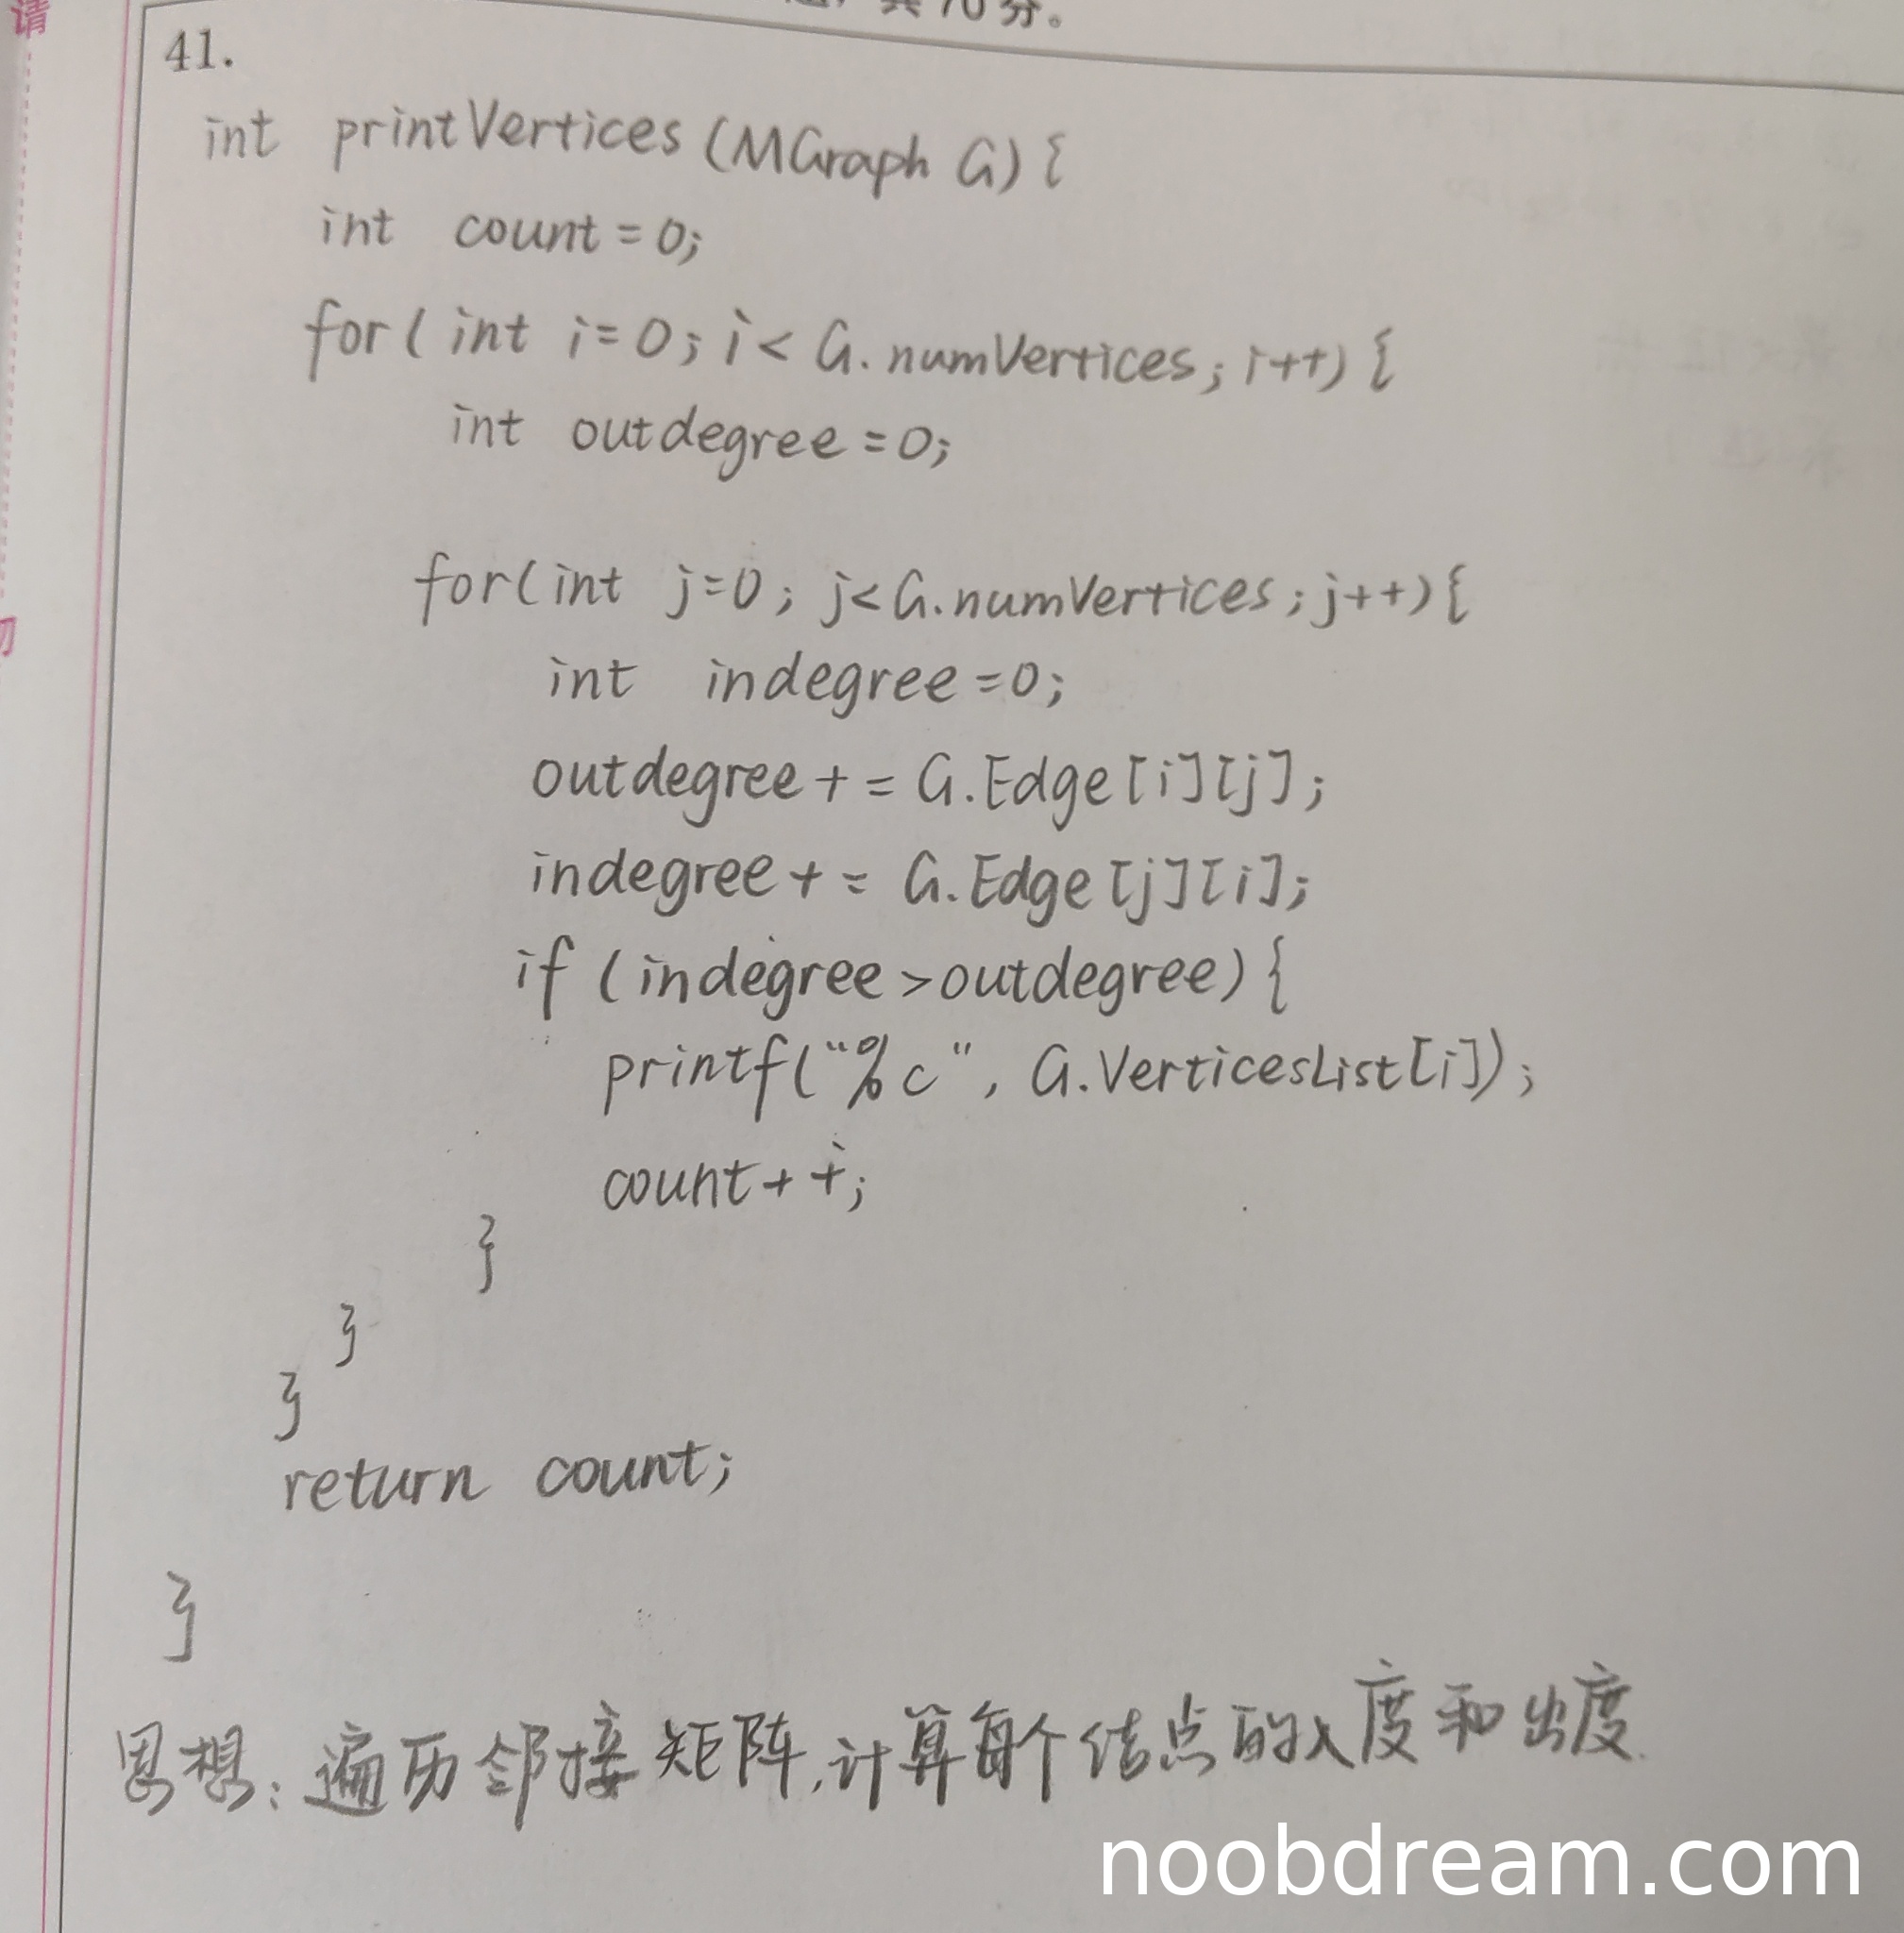 请
共70分。
41.
int printVertices (MGraph G) {
int count = 0;
for ( int i=0; i < G. numVertices; i++) {
int outdegree = 0;
for(int j=0; j<G.numVertices; j++){
int indegree = 0;
outdegree += G.Edge[i][j];
indegree += G.Edge[j][i];
if (indegree > outdegree) {
printf("%c", G.VerticesList[i]);
count++;
}
}
}
return count;
}
思想：遍历邻接矩阵,计算每个结点的入度和出度.
noobdream.com